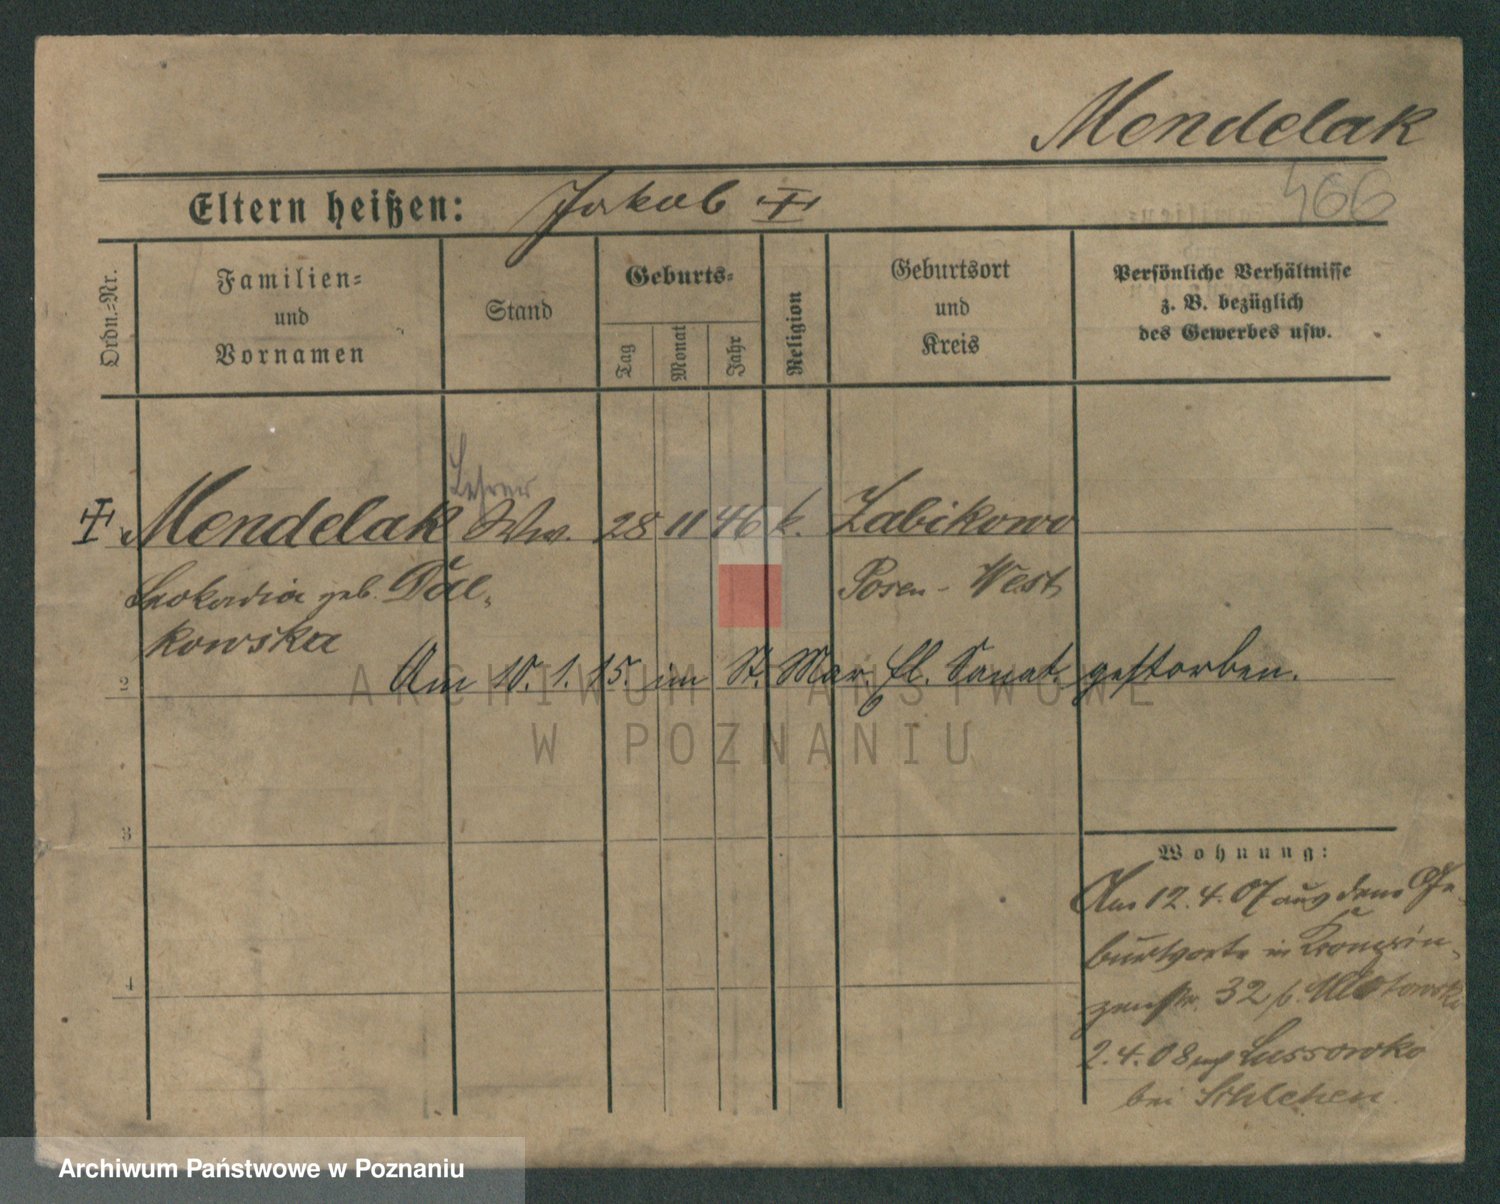 Mendelak
466
Eltern heißen: Jakob
Ordn.-Nr.
Familien-
und
Vornamen
Stand
Geburts-
Tag
Monat
Jahr
Religion
Geburtsort
und
Kreis
Persönliche Verhältnisse
z. B. bezüglich
des Gewerbes usw.
Lehrer
Mendelak Ww. 28 11 46 k. Zabikowo
Leokardia geb. Dal-
Posen - West
kowska
Am 10. 1. 15. im St. Mar. fl. Sanat. gestorben.
2
3
4
Wohnung:
Am 12. 4. 07 aus dem Ge-
burtsorte in Kronprin-
zenstr. 32 b.
2. 4. 08 nach Lussowko
bei Schlehen.
ARCHIWUM PAŃSTWOWE
W POZNANIU
Archiwum Państwowe w Poznaniu